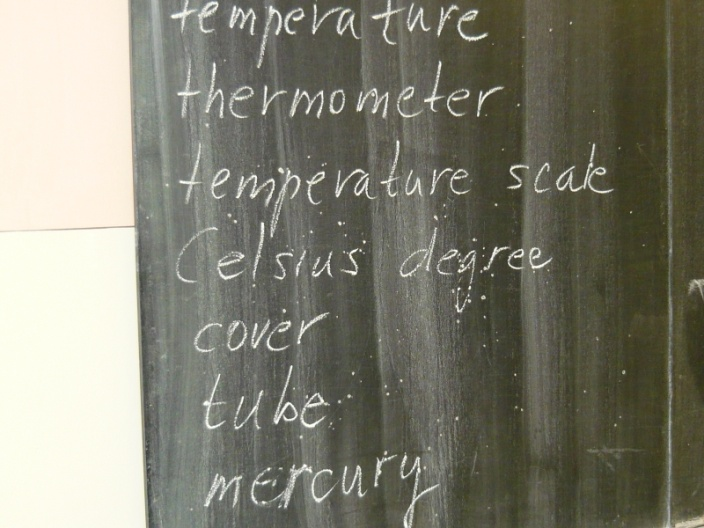 temperature
thermometer
temperature scale
Celsius degree
cover
tube
mercury